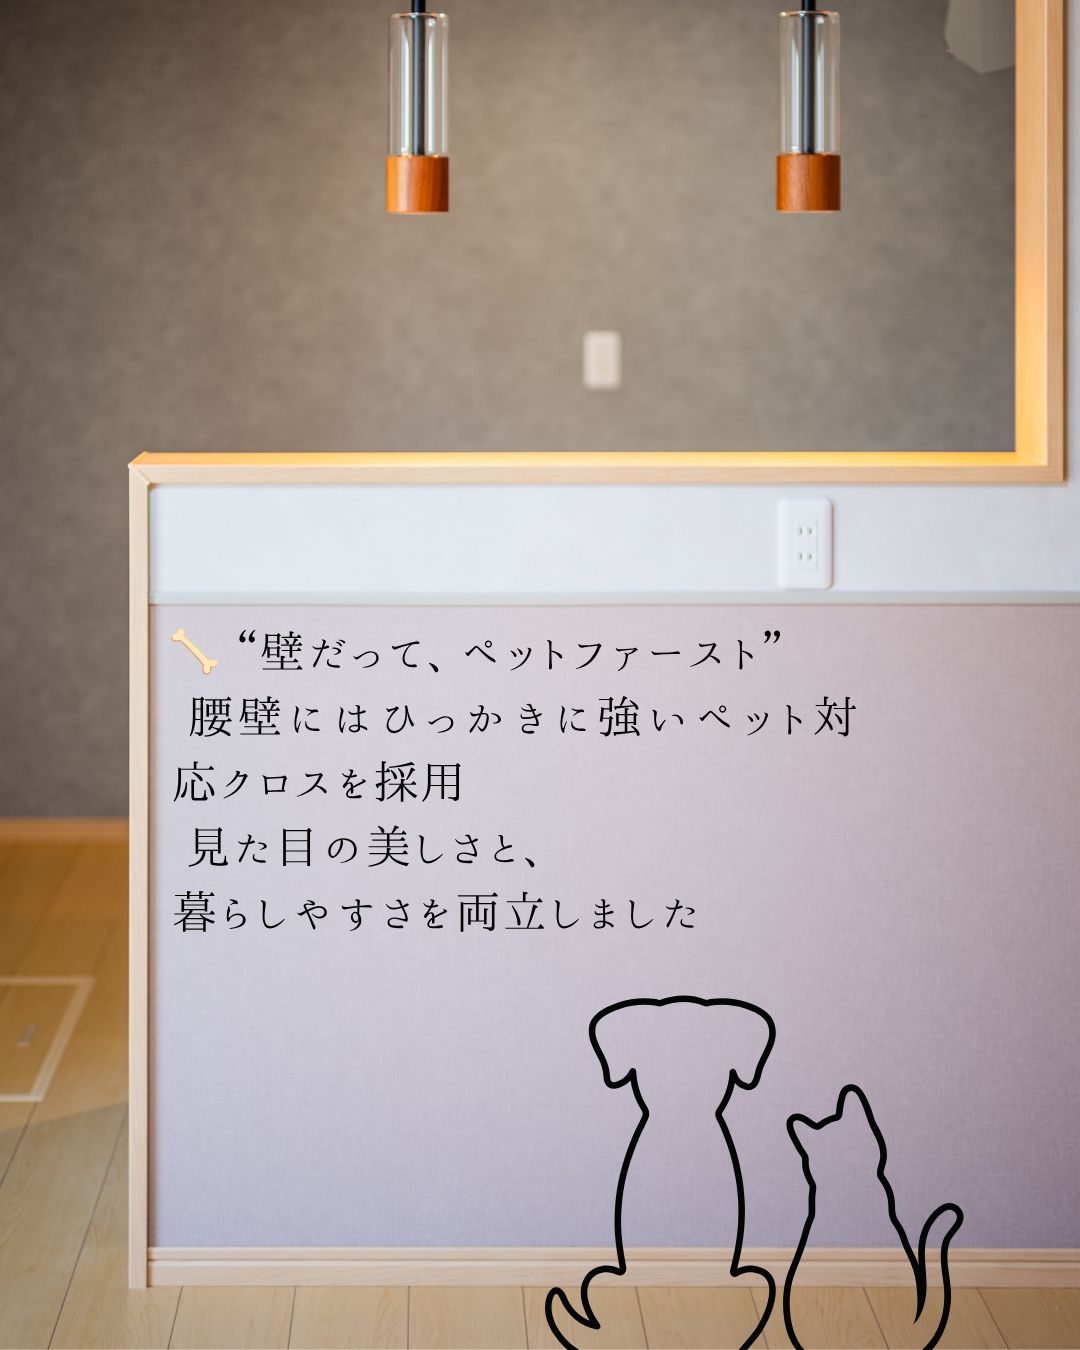 🦴 “壁だって、ペットファースト”
腰壁にはひっかきに強いペット対
応クロスを採用
見た目の美しさと、
暮らしやすさを両立しました